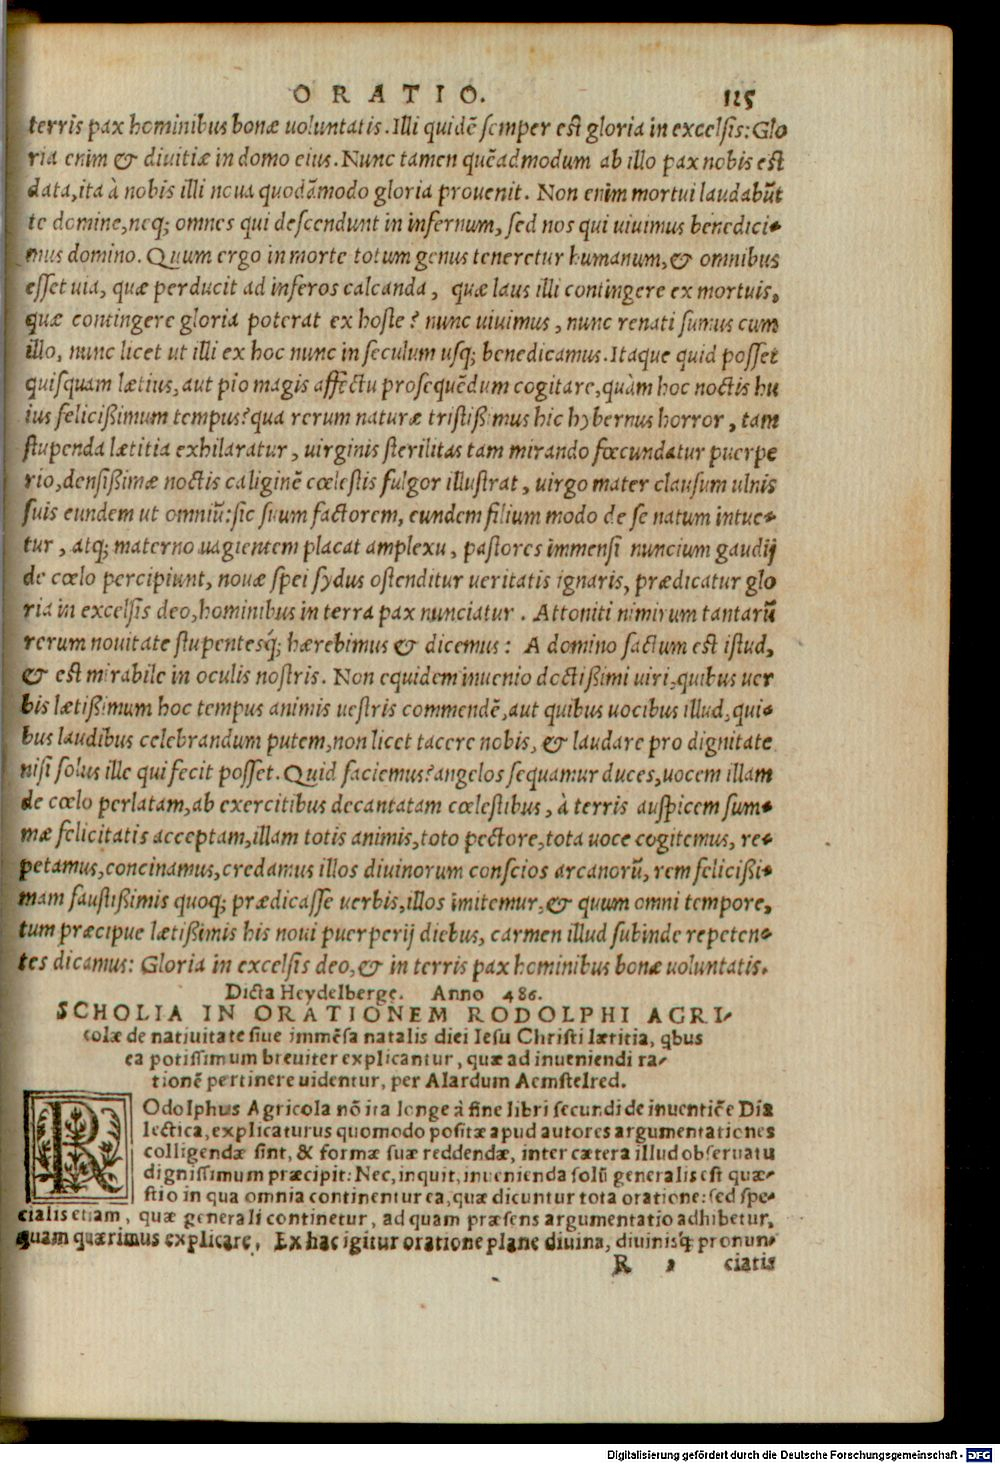 ORATIO. 125
terris pax hominibus bonæ uoluntatis. Illi quidē semper est gloria in excelsis: Glo
ria enim & diuitiæ in domo eius. Nunc tamen quēadmodum ab illo pax nobis est
data, ita à nobis illi noua quodāmodo gloria prouenit. Non enim mortui laudabūt
te domine, neq; omnes qui descendunt in infernum, sed nos qui uiuimus benedici-
mus domino. Quum ergo in morte totum genus teneretur humanum, & omnibus
esset uia, quæ perducit ad inferos calcanda, quæ laus illi contingere ex mortuis,
quæ contingere gloria poterat ex hoste? nunc uiuimus, nunc renati sumus cum
illo, nunc licet ut illi ex hoc nunc in seculum usq; benedicamus. Itaque quid posset
quisquam lætius, aut pio magis affectu prosequēdum cogitare, quàm hoc noctis hu
ius felicißimum tempus? qua rerum naturæ tristißimus hic hybernus horror, tam
stupenda lætitia exhilaratur, uirginis sterilitas tam mirando fœcundatur puerpe
rio, densißimæ noctis caliginē cœlestis fulgor illustrat, uirgo mater clausum ulnis
suis eundem ut omniū: sic suum factorem, eundem filium modo de se natum intue-
tur, atq; materno uagientem placat amplexu, pastores immensi nuncium gaudij
de cœlo percipiunt, nouæ spei sydus ostenditur ueritatis ignaris, prædicatur glo
ria in excelsis deo, hominibus in terra pax nunciatur. Attoniti nimirum tantarū
rerum nouitate stupentesq́; hærebimus & dicemus: A domino factum est istud,
& est mirabile in oculis nostris. Non equidem inuenio doctißimi uiri, quibus uer
bis lætißimum hoc tempus animis uestris commendē, aut quibus uocibus illud, qui-
bus laudibus celebrandum putem, non licet tacere nobis, & laudare pro dignitate
nisi solus ille qui fecit posset. Quid faciemus? angelos sequamur duces, uocem illam
de cœlo perlatam, ab exercitibus decantatam cœlestibus, à terris auspicem sum-
mæ felicitatis acceptam, illam totis animis, toto pectore, tota uoce cogitemus, re-
petamus, concinamus, credamus illos diuinorum conscios arcanorū, rem felicißi-
mam faustißimis quoq; prædicasse uerbis, illos imitemur, & quum omni tempore,
tum præcipue lætißimis his noui puerperij diebus, carmen illud subinde repeten-
tes dicamus: Gloria in excelsis deo, & in terris pax hominibus bonæ uoluntatis.
Dicta Heydelberge. Anno 486.
SCHOLIA IN ORATIONEM RODOLPHI AGRI-
colæ de natiuitate siue immēsa natalis diei Iesu Christi lætitia, qbus
ea potissimum breuiter explicantur, quæ ad inueniendi ra-
tionē pertinere uidentur, per Alardum Aemstelred.
ROdolphus Agricola nō ita longe à fine libri secundi de inuentiōe Dia
lectica, explicaturus quomodo positæ apud autores argumentationes
colligendæ sint, & formæ suæ reddendæ, inter cætera illud obseruatu
dignissimum præcipit: Nec, inquit, inuenienda solū generalis est quæ-
stio in qua omnia continentur ea, quæ dicuntur tota oratione: sed spe-
cialis etiam, quæ generali continetur, ad quam præsens argumentatio adhibetur,
quam quærimus explicare. Ex hac igitur oratione plane diuina, diuinisq́ pronun-
R 3 ciatis
Digitalisierung gefördert durch die Deutsche Forschungsgemeinschaft - DFG